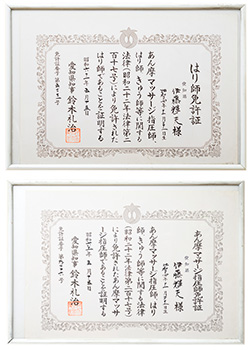 はり師免許証
愛知県
伊藤雅文様
あん摩マッサージ指圧師
はり師、きゅう師等に関する
法律(昭和二十二年法律第二
百十七号)により免許された
はり師であることを証明する
愛知県知事 鈴木礼治
あん摩マッサージ指圧師免許証
愛知県
伊藤雅文様
あん摩マッサージ指圧師、はり
師、きゅう師等に関する法律
(昭和二十二年法律第二百十七号)
により免許されたあん摩マッサ
ージ指圧師であることを証明する
愛知県知事 鈴木礼治